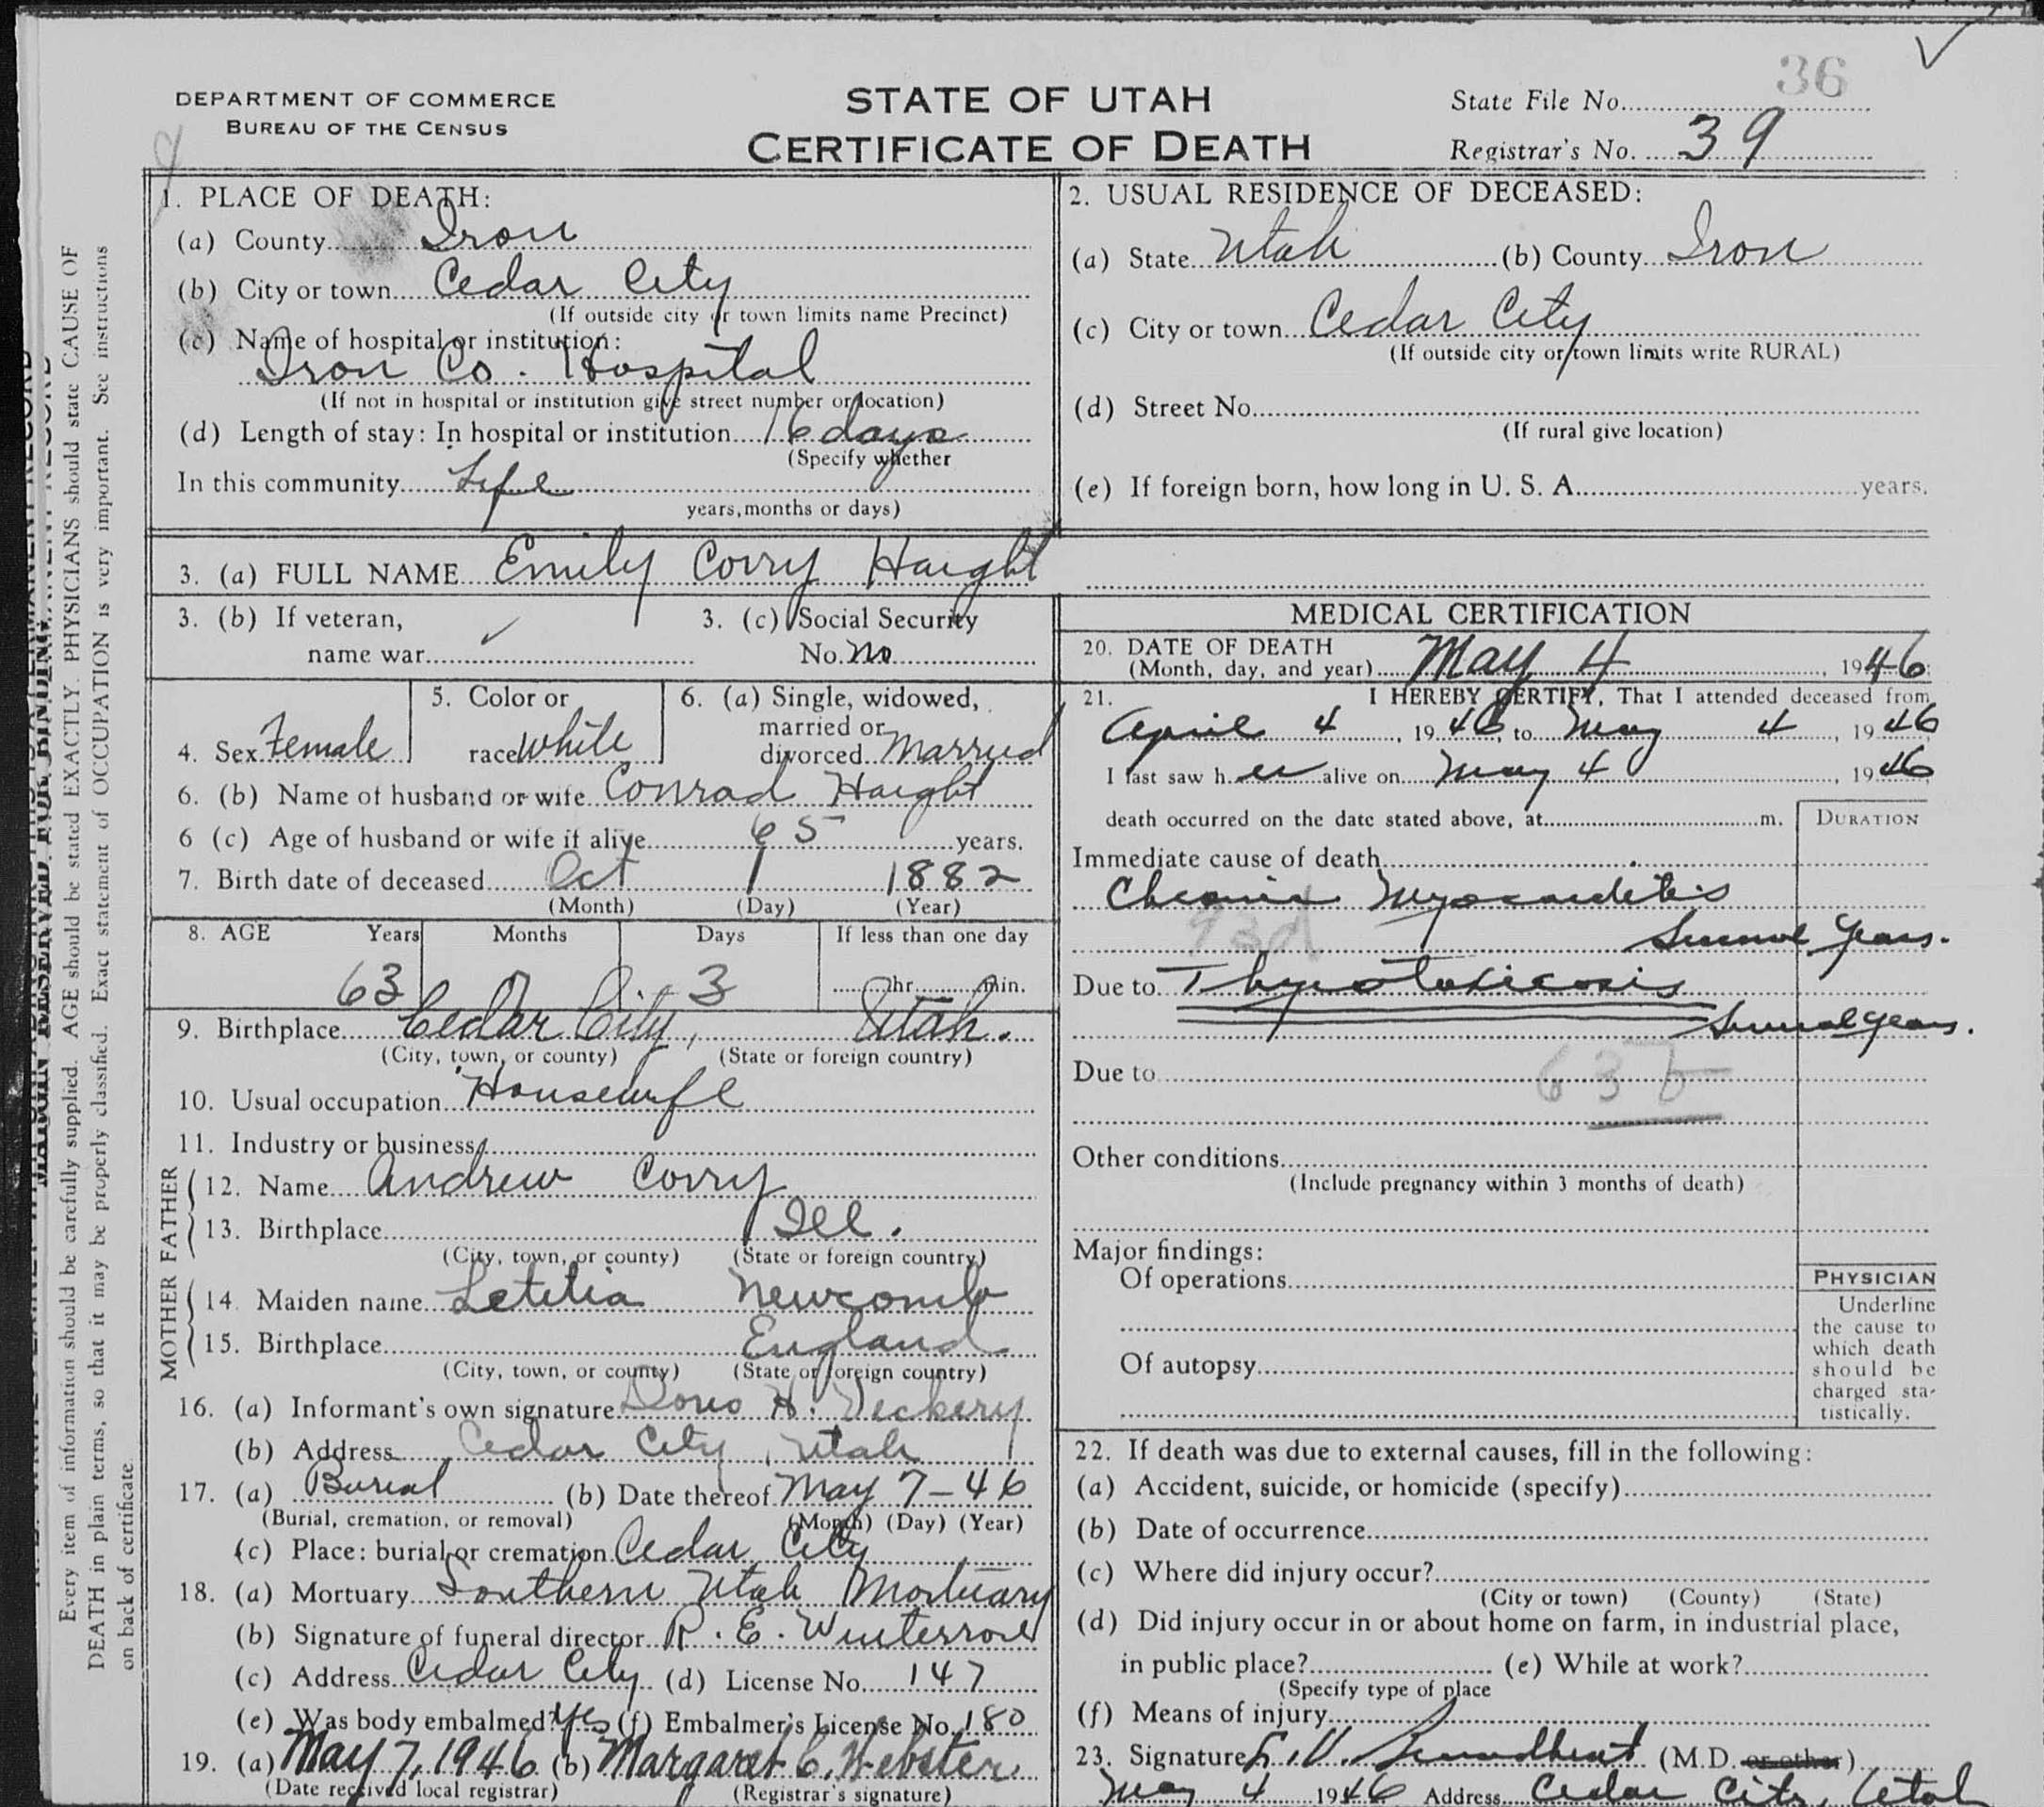 36
DEPARTMENT OF COMMERCE
BUREAU OF THE CENSUS
STATE OF UTAH
CERTIFICATE OF DEATH
State File No.
Registrar's No. 39
1. PLACE OF DEATH:
(a) County Iron
(b) City or town Cedar City
(If outside city or town limits name Precinct)
(c) Name of hospital or institution:
Iron Co. Hospital
(If not in hospital or institution give street number or location)
(d) Length of stay: In hospital or institution 16 days
(Specify whether
In this community Life
years, months or days)
2. USUAL RESIDENCE OF DECEASED:
(a) State Utah (b) County Iron
(c) City or town Cedar City
(If outside city or town limits write RURAL)
(d) Street No.
(If rural give location)
(e) If foreign born, how long in U. S. A. years.
3. (a) FULL NAME Emily Corry Haight
3. (b) If veteran,
name war
3. (c) Social Security
No. no
4. Sex Female
5. Color or
race white
6. (a) Single, widowed,
married or
divorced Married
6. (b) Name of husband or wife Conrad Haight
6 (c) Age of husband or wife if alive 65 years.
7. Birth date of deceased Oct 1 1882
(Month) (Day) (Year)
8. AGE Years Months Days If less than one day
63 7 3 hr. min.
9. Birthplace Cedar City, Utah.
(City, town, or county) (State or foreign country)
10. Usual occupation Housewife
11. Industry or business
FATHER
12. Name Andrew Corry
13. Birthplace Ill.
(City, town, or county) (State or foreign country)
MOTHER
14. Maiden name Letitia Newcomb
15. Birthplace England
(City, town, or county) (State or foreign country)
16. (a) Informant's own signature H.
(b) Address Cedar City, Utah
17. (a) Burial (b) Date thereof May 7-46
(Burial, cremation, or removal) (Month) (Day) (Year)
(c) Place: burial or cremation Cedar City
18. (a) Mortuary Southern Utah Mortuary
(b) Signature of funeral director R. E. Winterrose
(c) Address Cedar City (d) License No. 147
(e) Was body embalmed? Yes (f) Embalmer's License No. 180
19. (a) May 7, 1946 (b) Margaret C. Webster
(Date received local registrar) (Registrar's signature)
MEDICAL CERTIFICATION
20. DATE OF DEATH
(Month, day, and year) May 4, 1946
21. I HEREBY CERTIFY, That I attended deceased from
April 4, 1946, to May 4, 1946
I last saw her alive on May 4, 1946
death occurred on the date stated above, at m.
DURATION
Immediate cause of death
Chronic Myocarditis
93d
Several Years.
Due to Thyrotoxicosis
Several years.
Due to 63b
Other conditions
(Include pregnancy within 3 months of death)
Major findings:
Of operations
Of autopsy
PHYSICIAN
Underline
the cause to
which death
should be
charged sta-
tistically.
22. If death was due to external causes, fill in the following:
(a) Accident, suicide, or homicide (specify)
(b) Date of occurrence
(c) Where did injury occur?
(City or town) (County) (State)
(d) Did injury occur in or about home on farm, in industrial place,
in public place? (e) While at work?
(Specify type of place
(f) Means of injury
23. Signature (M.D. or other)
May 4 1946 Address Cedar City, Utah
MARGIN RESERVED FOR BINDING
Every item of information should be carefully supplied. AGE should be stated EXACTLY. PHYSICIANS should state CAUSE OF
DEATH in plain terms, so that it may be properly classified. Exact statement of OCCUPATION is very important. See instructions
on back of certificate.